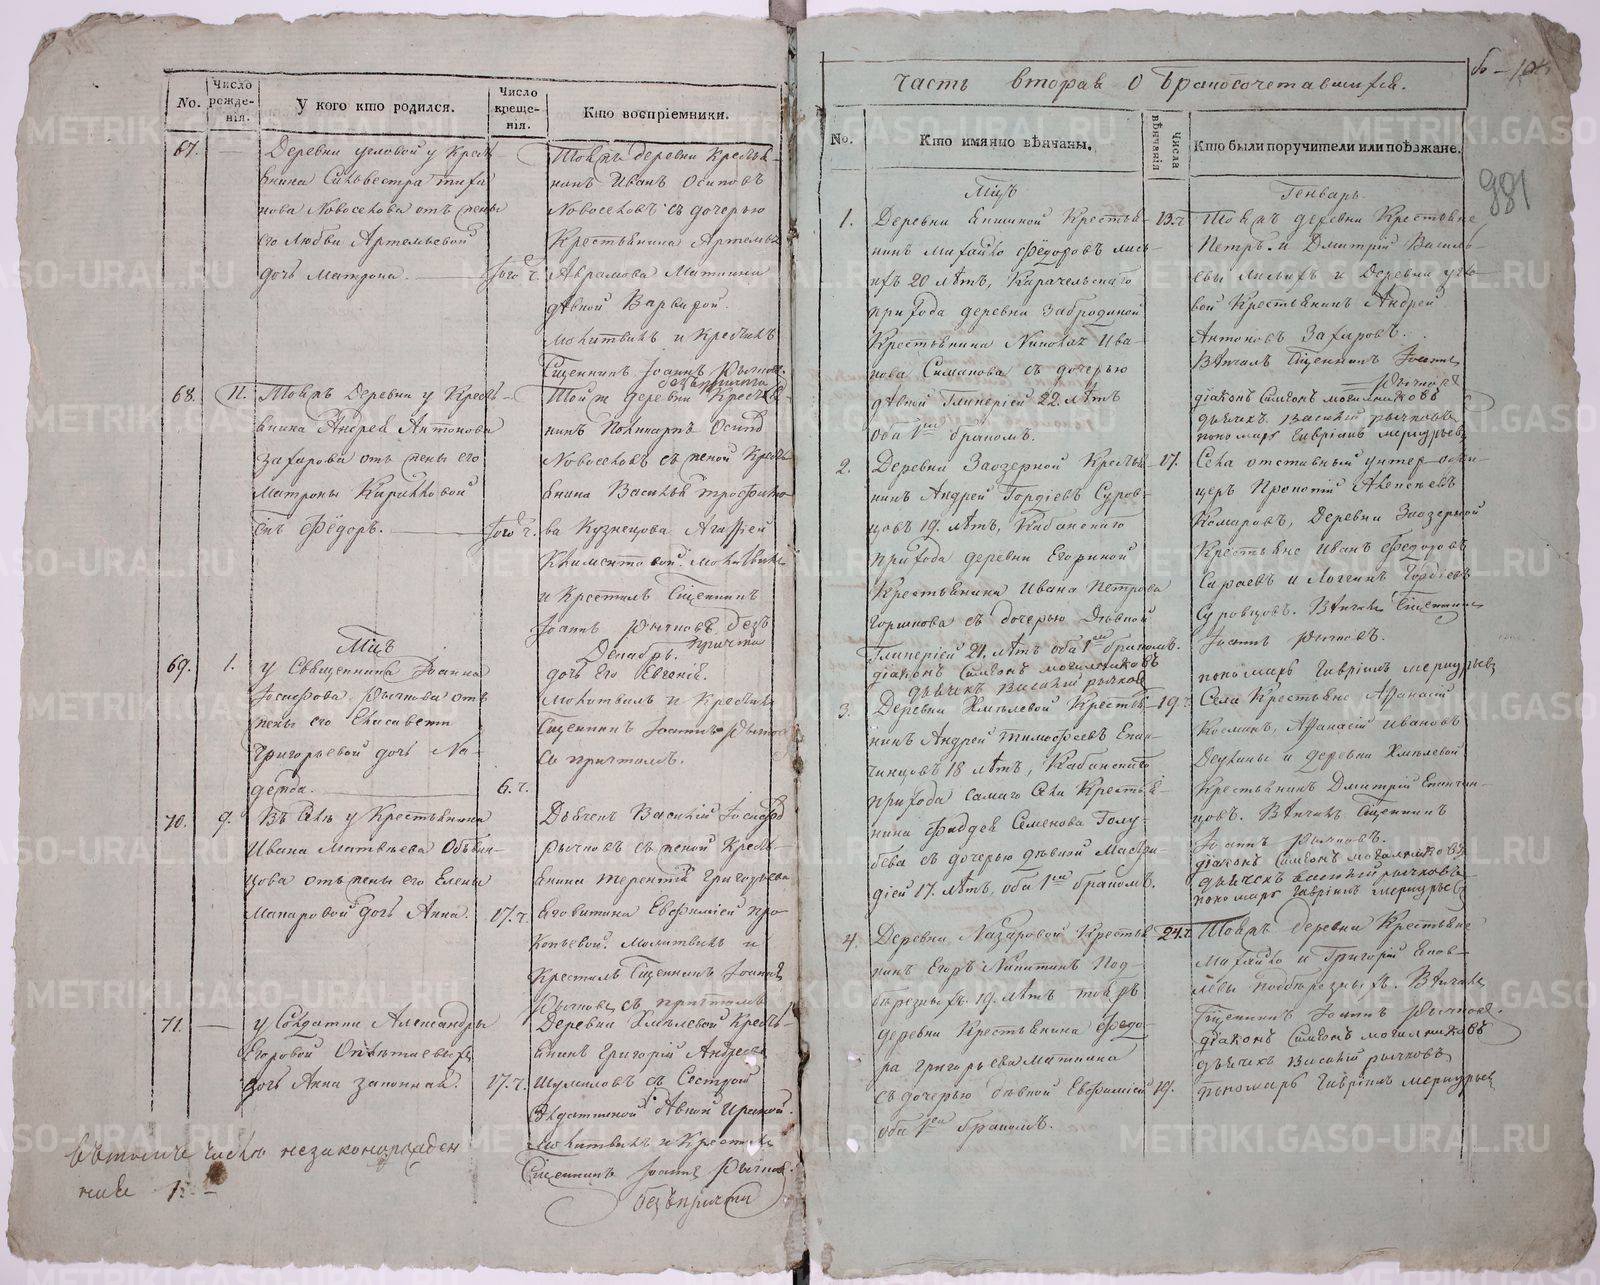 No.
Число рожде-нія.
У кого кто родился.
Число креще-нія.
Кто воспріемники.
67.
Деревни у Кресть-
янина Сильвестра
нова Новоселова отъ жены
его Любви Артемьевой
дочь Матрона.
Той же деревни Крестья-
нинъ Иванъ Осиповъ
Новоселовъ съ дочерью
Крестьянина Артемья
Аврамова Маткина
дѣвкой Варварой.
Молитвилъ и Крестилъ
Сщенникъ Іоаннъ Рычковъ
безъ причта
68.
11.
Той же Деревни у Кресть-
янина Андрея Антонова
Захарова отъ жены его
Матроны Кирилловой
сынъ Ѳёдоръ.
Той же деревни Крестья-
нинъ Поликарпъ Осипов
Новоселовъ съ женой Кресть-
янина Василья Трофимо-
ва Кузнецова Агафіей
Климентовой. Молитвилъ
и Крестилъ Сщенникъ
Іоаннъ Рычковъ безъ
причта
Мцъ
Декабрь.
69.
1.
у Священника Іоанна
Іосифова Рычкова отъ
жены его Елисаветы
Григорьевой дочь На-
дежда.
6.ч.
дочь его Евгенія.
Молитвилъ и Крестилъ
Сщенникъ Іоаннъ Рычков
съ причтомъ.
70.
9.
Въ Селѣ у Крестьянина
Ивана Матвѣева
цова отъ жены его Елены
Макаровой дочь Анна.
17.ч.
Дьячекъ Василій Іосифов
Рычковъ съ женой Кресть-
янина Терентія Григорьева
Еговитина Евфиміей Про-
копьевой. Молитвилъ и
Крестилъ Сщенникъ Іоаннъ
Рычковъ съ причтомъ
71.
у Солдатки Александры
Егоровой
дочь Анна законная.
17.ч.
Деревни Хмѣлевой Кресть-
янинъ Григорій Андреевъ
Шумиловъ съ Сестрой
Солдатской дѣвкой Ириной.
Молитвилъ и Крестилъ
Сщенникъ Іоаннъ Рычков
безъ причта
въ томъ числѣ незаконорожден
ные 1
Часть вторая О бракосочетавшихся.
981
No.
Кто имянно вѣнчаны.
Числа вѣнчанія
Кто были поручители или поѣзжане.
Мцъ
Генварь.
1.
Деревни Крестья-
нинъ Михайло Ѳёдоровъ
20 лѣтъ, Карачельскаго
прихода деревни Забродиной
Крестьянина Николая Ива-
нова Симанова съ дочерью
дѣвкой Гликеріей 22. лѣтъ
оба 1мъ бракомъ.
13.ч.
Той же деревни Крестьяне
Петръ и Дмитрій Василь-
евы и Деревни
Крестьянинъ Андрей
Антоновъ Захаровъ.
Вѣнчалъ Сщенникъ Іоаннъ
Рычковъ
діаконъ Симеонъ Могильниковъ
дьячекъ Василій Рычковъ
пономарь Гавріилъ Меркурьевъ
2.
Деревни Заозерной Крестья-
нинъ Андрей Гордіевъ Суров-
цовъ 19. лѣтъ, Кабанскаго
прихода деревни Егориной
Крестьянина Ивана Петрова
Горшкова съ дочерью Дѣвкой
Гликеріей 21. лѣтъ оба 1мъ бракомъ.
діаконъ Симеонъ Могильниковъ
дьячекъ Василій Рычков
17.
Села отставный унтер офи-
церъ Прокопій Алексѣевъ
Комаровъ, Деревни Заозерной
Крестьяне Иванъ Ѳедоровъ
Сараевъ и Логгинъ Гордіевъ
Суровцовъ. Вѣнчалъ Сщенникъ
Іоаннъ Рычковъ.
пономарь Гавріилъ Меркурьевъ
3.
Деревни Хмѣлевой Крестья-
нинъ Андрей Тимофѣевъ Епан-
чинцовъ 18 лѣтъ, Кабанскаго
прихода самаго Села Крестья-
нина Фаддея Семенова Голу-
бева съ дочерью дѣвкой Мастри-
діей 17. лѣтъ, оба 1мъ бракомъ.
19.ч.
Села Крестьяне Афанасій
Космичъ, Афанасій Ивановъ
и деревни Хмѣлевой
Крестьянинъ Дмитрій Епанчин-
цовъ. Вѣнчалъ Сщенникъ
Іоаннъ Рычковъ.
діаконъ Симеонъ Могильниковъ
дьячекъ Василій Рычковъ
пономарь Гавріилъ Меркурьевъ
4.
Деревни Лазаровой Крестья-
нинъ Егоръ Никитинъ Под-
березныхъ 19. лѣтъ той же
деревни Крестьянина Ѳедо-
ра Григорьева Маткина
съ дочерью дѣвкой Евфиміей 19.
оба 1мъ бракомъ.
24.ч.
Той же деревни Крестьяне
Михайло и Григорій
Подберезныхъ. Вѣнчалъ
Сщенникъ Іоаннъ Рычковъ.
діаконъ Симеонъ Могильниковъ
дьячекъ Василій Рычковъ
пономарь Гавріилъ Меркурьевъ
METRIKI.GASO-URAL.RU